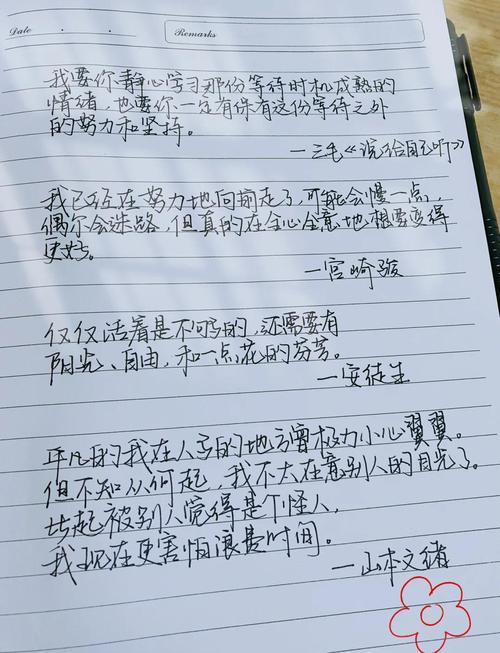 Date
Remarks
我要你静心学习那份等待时机成熟的
情绪，也要你一定有保有这份等待之外
的努力和坚持。
—三毛《说给自己听》
我已经在努力地向前走了，可能会慢一点，
偶尔会迷路，但真的在全心全意地想要变得
更好。
—宫崎骏
仅仅活着是不够的，还需要有
阳光、自由，和一点花的芬芳。
—安徒生
平凡的我在人多的地方曾极力小心翼翼。
但不知从何起，我不太在意别人的目光了。
比起被别人觉得是个怪人，
我现在更害怕浪费时间。
—山本文绪